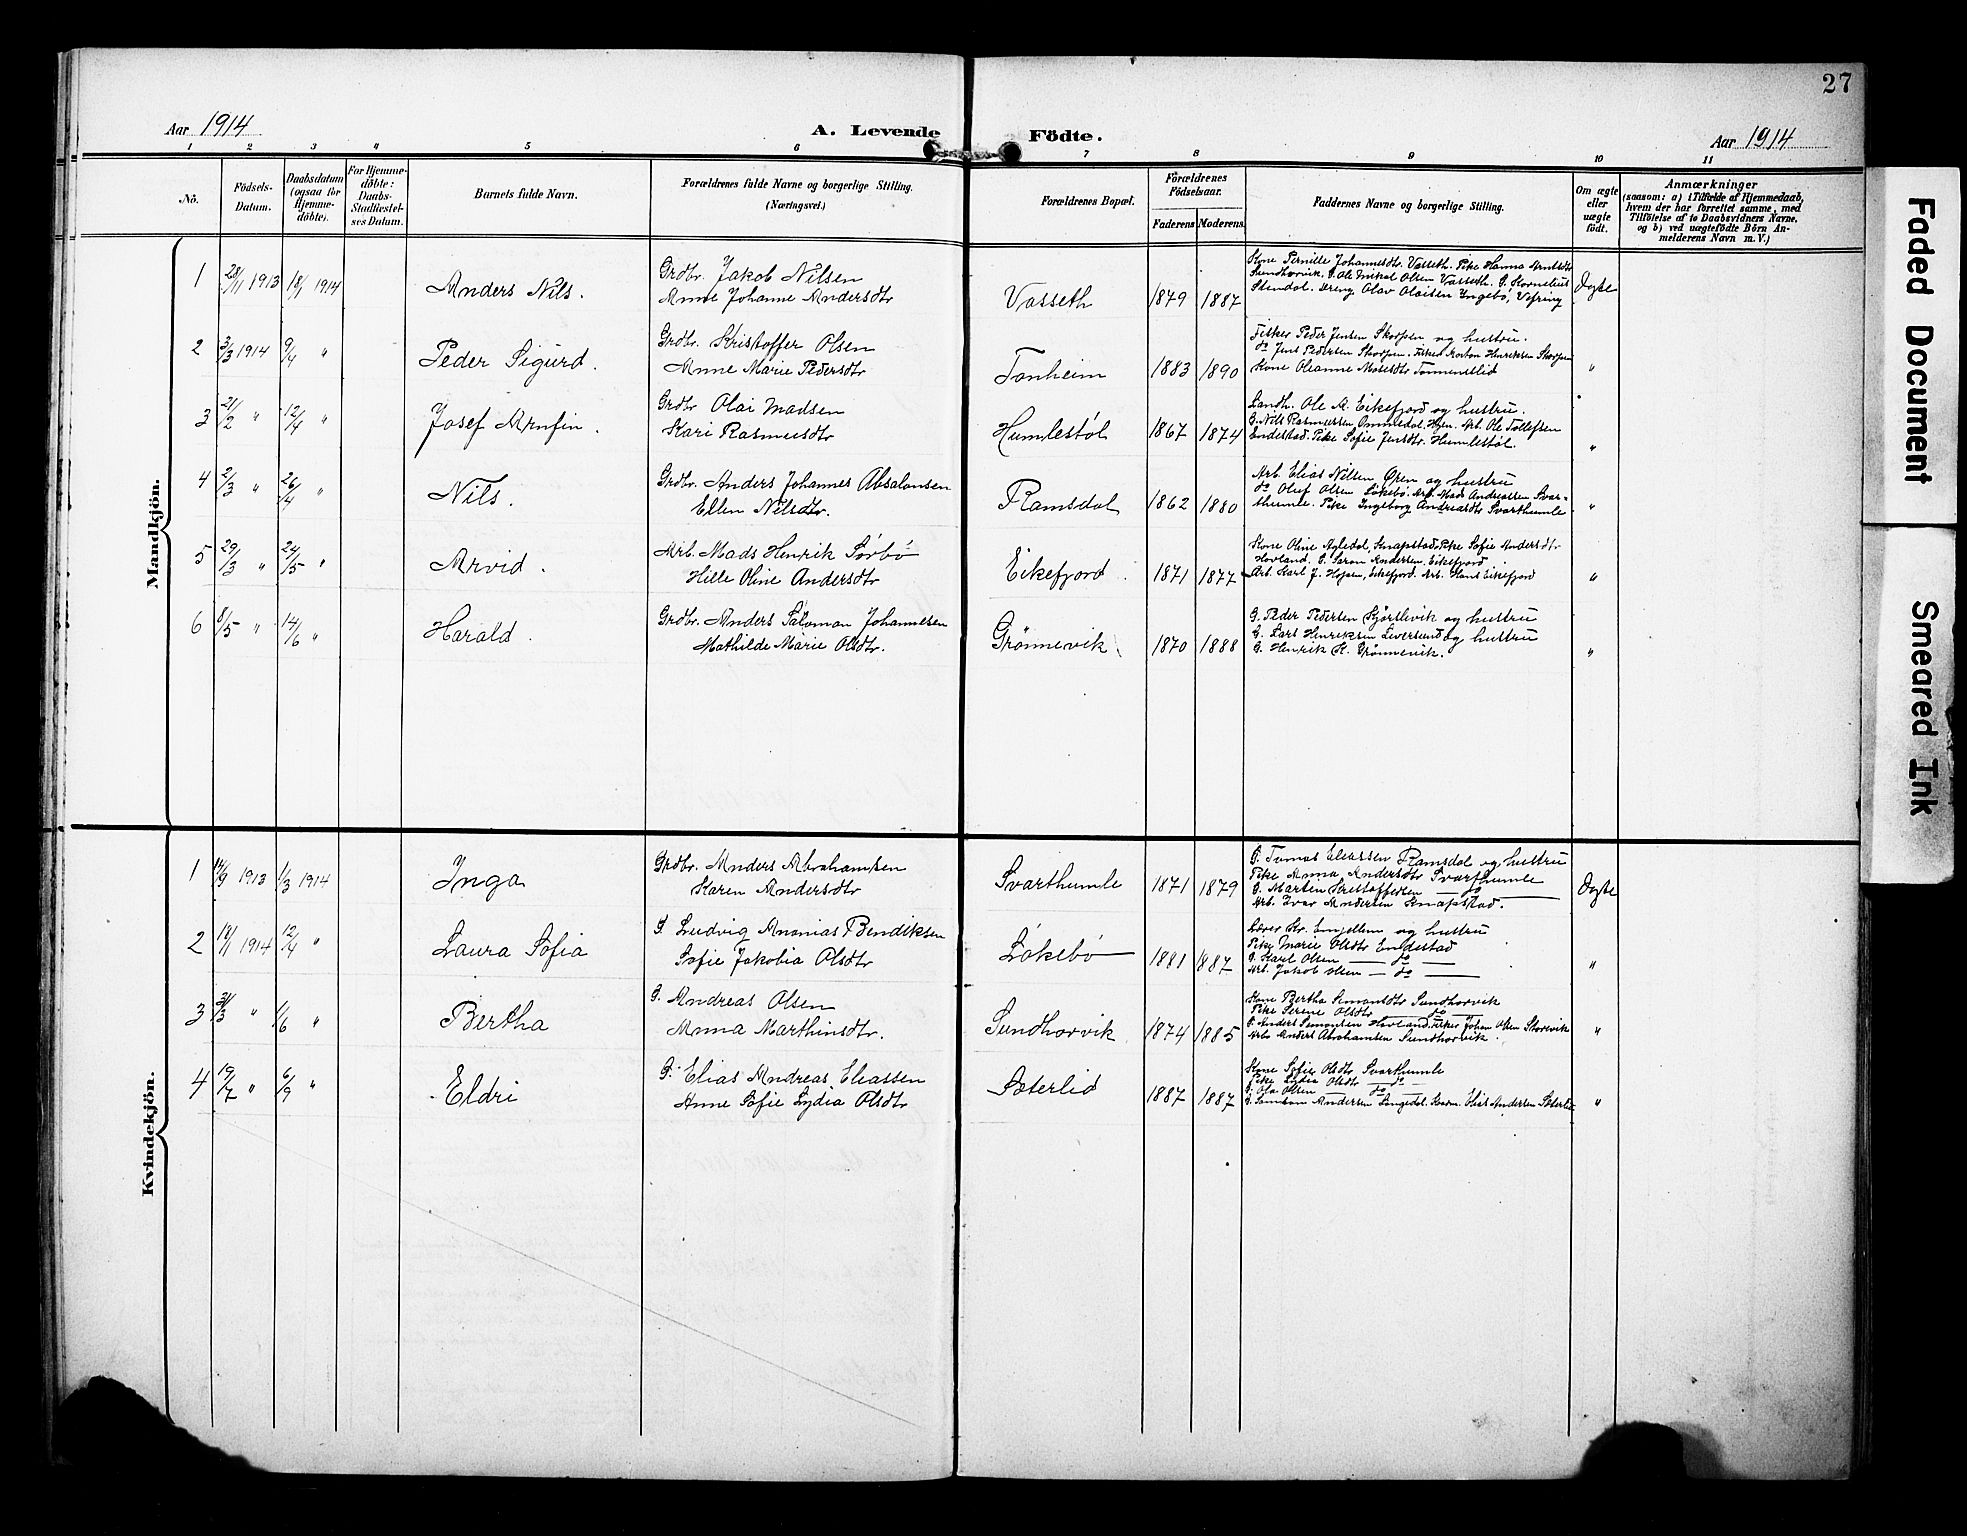 27
Aar 1914
A. Levende Födte.
Aar 1914
1 2 3 4 5 6 7 8 9 10 11
No.
Födsels-
Datum.
Daabsdatum
(ogsaa for
Hjemme-
döbte).
For Hjemme-
döbte:
Daabs-
Stadfæstel-
ses Datum.
Barnets fulde Navn.
Forældrenes fulde Navne og borgerlige Stilling.
(Næringsvei.)
Forældrenes Bopæl.
Forældrenes
Födselsaar.
Faderens Moderens
Faddernes Navne og borgerlige Stilling.
Om ægte
eller
uægte
födt.
Anmærkninger
(saasom: a) i Tilfælde af Hjemmedaab,
hvem der har forrettet samme, med
Tilföielse af to Daabsvidners Navne,
og b) ved uægtefödte Börn An-
melderens Navn m. V.)
Mandkjön.
1 28/11 1913 18/1 1914 Anders Nils.
Grdbr. Jakob Nilsen
Anne Johanne Andersdtr
Vasseth 1879 1887
Kone Pernille Johannesdtr. Vasseth. Pike Hanna Arntsdtr
Sundhorvik. G. Ole Mikal Olsen Vasseth. G. Kornelius
Stendal. Dreng Olav Olaisen Ingebø, Vefring
Ægte
2 3/3 1914 9/4 " Peder Sigurd.
Grdbr. Kristoffer Olsen
Anne Marie Pedersdtr
Tonheim 1883 1890
Fisker Peder Jensen Skorpen og hustru.
do Jens Pedersen Skorpen. Fisker Morten Henriksen Skorpen
Kone Oleanne Mosesdtr Tonnenetlid
"
3 21/2 " 12/4 " Josef Arnfin.
Grdbr Olai Madsen
Kari Rasmusdtr
Humlestøl 1867 1874
Landh. Ole A. Eikefjord og hustru.
G. Nils Rasmussen Ommedal. Hyen. Arb. Ole Tollefsen
Endestad. Pike Sofie Jensdtr. Humlestøl.
"
4 2/3 " 26/4 " Nils.
Grdbr. Anders Johannes Absalonsen
Ellen Nilsdtr.
Ramsdal 1862 1880
Arb. Elias Nilsen Øren og hustru
do Oluf Olsen Løkebø. Arb. Mads Andreassen Svar-
thumle. Pike Ingeborg Andreasdtr Svarthumle
"
5 29/3 " 24/5 " Arvid.
Arb. Mads Henrik Sørbø
Hille Oline Andersdtr
Eikefjord. 1871 1877
Kone Oline Agledal, Knapstad. Pike Sofie Andersdtr
Hovland. G. Søren Andersen Eikefjord
Arb. Karl J. Hojem, Eikefjord. Arb. Hans Eikefjord
"
6 8/5 " 14/6 " Harald.
Grdbr. Anders Saloman Johannesen
Mathilde Marie Olsdtr.
Grønnevik 1870 1888
G. Peder Pedersen Kjørtlevik og hustru
G. Lars Henriksen Liversund og hustru
G. Henrik K. Grønnevik.
"
Kvindekjön.
1 14/9 1913 1/3 1914 Inga
Grdbr. Anders Abrahamsen
Karen Andersdtr
Svarthumle 1871 1879
G. Tomas Eliassen Ramsdal og hustru
Pike Anna Andersdtr Svarthumle
G. Marten Kristoffersen — do —
Arb. Ivar Andersen Knapstad.
Ægte
2 18/1 1914 12/4 " Laura Sofia
G Ludvig Ananias Bendiksen
Sofie Jakobia Olsdtr
Løkebø 1881 1887
Lærer Kr. Engellem og hustru
Pike Marie Olsdtr Endestad
G. Karl Olsen — do —
Arb. Jakob Olsen — do —
"
3 31/3 " 1/6 " Bertha
G. Andreas Olsen
Anna Marthinsdtr.
Sundhorvik 1874 1885
Kone Bertha Simonsdtr Sundhorvik
Pike Serene Olsdtr — do —
G. Anders Simonsen Hovland. Fisker Johan Olsen Storevik
Arb. Anders Abrahamsen Sundhorvik.
"
4 19/7 " 6/9 " Eldri
G. Elias Andreas Eliassen
Anne Sofie Lydia Olsdtr
Sæterlid 1887 1887
Kone Sofie Olsdtr Svarthumle
Pike Lydia Olsdtr — do —
G. Ola Olsen — do —
G. Samson Andersen Langedal. Elias Andersen Sæterlid
"
Faded Document
Smeared Ink